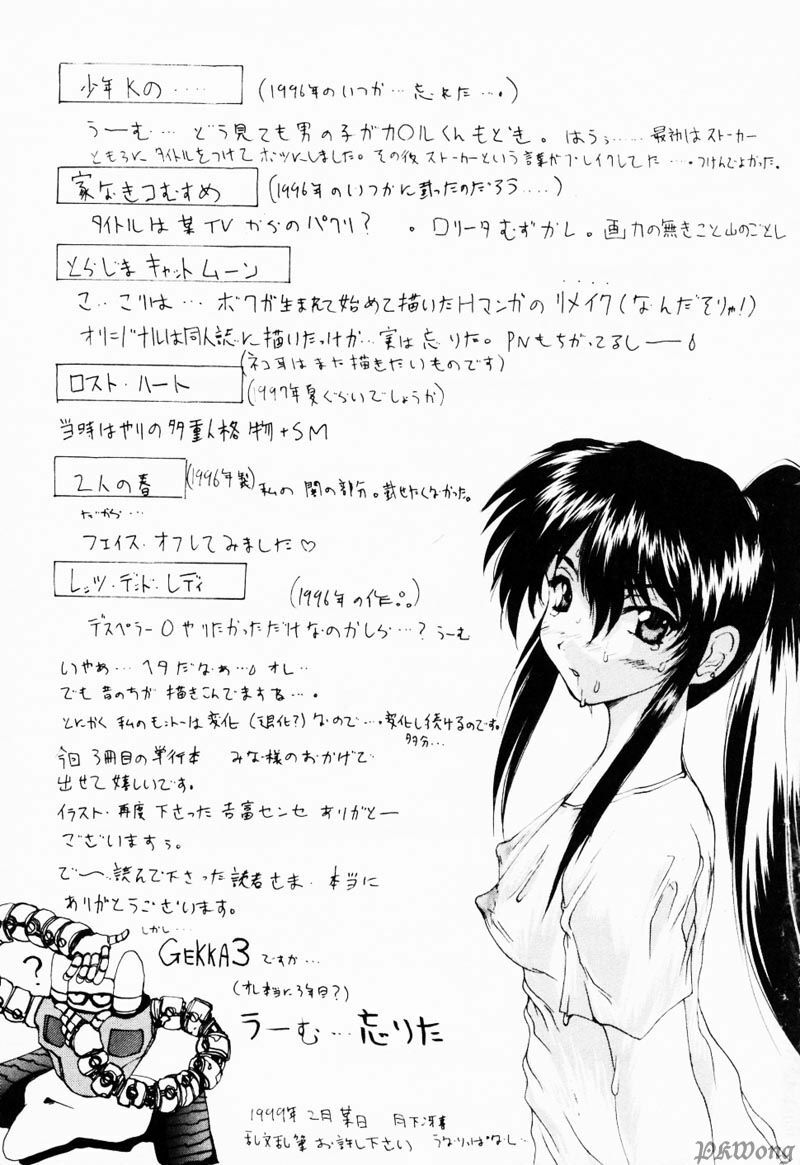 少年Kの・・・・
(1996年のいつか…忘れた…。)
うーむ… どう見ても男の子がカ○ルくんもどき。はうぅ…… 最初はストーカー
ともろにタイトルをつけてボツにしました。その後ストーカーという言葉がブレイクしてた…・つけんでよかった。
家なきコむすめ
(1996年のいつかに載ったのだろう・・・・)
タイトルは某TVからのパクリ? 。ロリータむずかし。画力の無きこと山のごとし
とらじまキャットムーン
こ、こりは… ボクが生まれて始めて描いたHマンガのリメイク(なんだそりゃ!)
オリジナルは同人誌に描いたっけか…実は忘りた。PNもちがってるしー
(ネコ耳はまた描きたいものです)
ロスト・ハート
(1997年夏ぐらいでしょうか)
当時はやりの多重人格物+SM
2人の春
(1996年製)
私の闇の部分。載せたくなかった。
だから…
フェイス・オフしてみました♡
レッツ・デンド・レディ
(1996年の作。。)
デスペラー○やりたかっただけなのかしら…?うーむ
いやぁ… ヘタだなぁ…。オレ…
でも昔のちが描きこんでますね…。
とにかく私のモットーは変化(退化?)なので…・変化し続けるのです。
多分…
今回3冊目の単行本 みな様のおかげで
出せて嬉しいです。
イラスト・再度下さった吉富センセありがとー
ございますぅ。
で〜、読んで下さった読者さま、本当に
ありがとうございます。
しかし…
GEKKA3ですか…
(オレ本当に3年目?)
うーむ…忘りた
?
1999年2月某日 月下冴喜
乱文乱筆お許し下さい うなりっぱなし…
PKWong